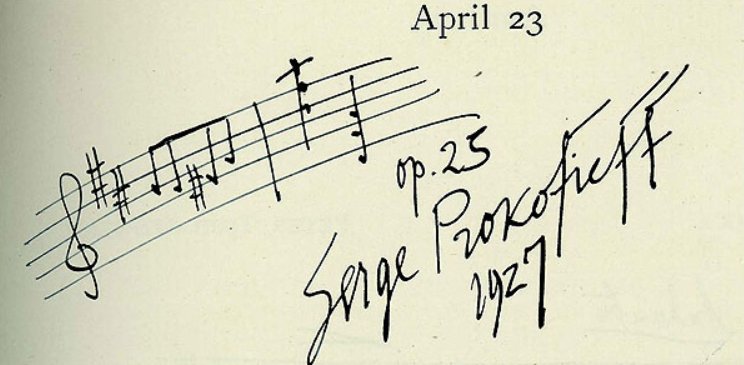 April 23
op. 25
Serge Prokofieff
1927